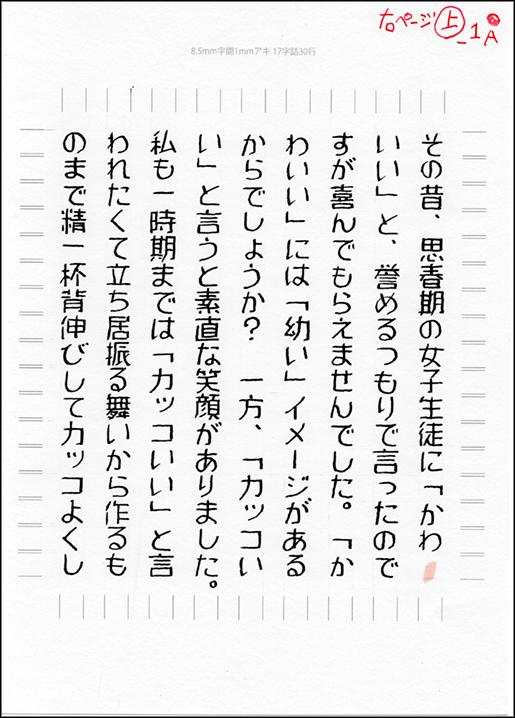 右ページ㊤_1A
8.5mm字間1mmアキ 17字詰30行
その昔、思春期の女子生徒に「かわ
いい」と、誉めるつもりで言ったので
すが喜んでもらえませんでした。「か
わいい」には「幼い」イメージがある
からでしょうか？　一方、「カッコい
い」と言うと素直な笑顔がありました。
私も一時期までは「カッコいい」と言
われたくて立ち居振る舞いから作るも
のまで精一杯背伸びしてカッコよくし